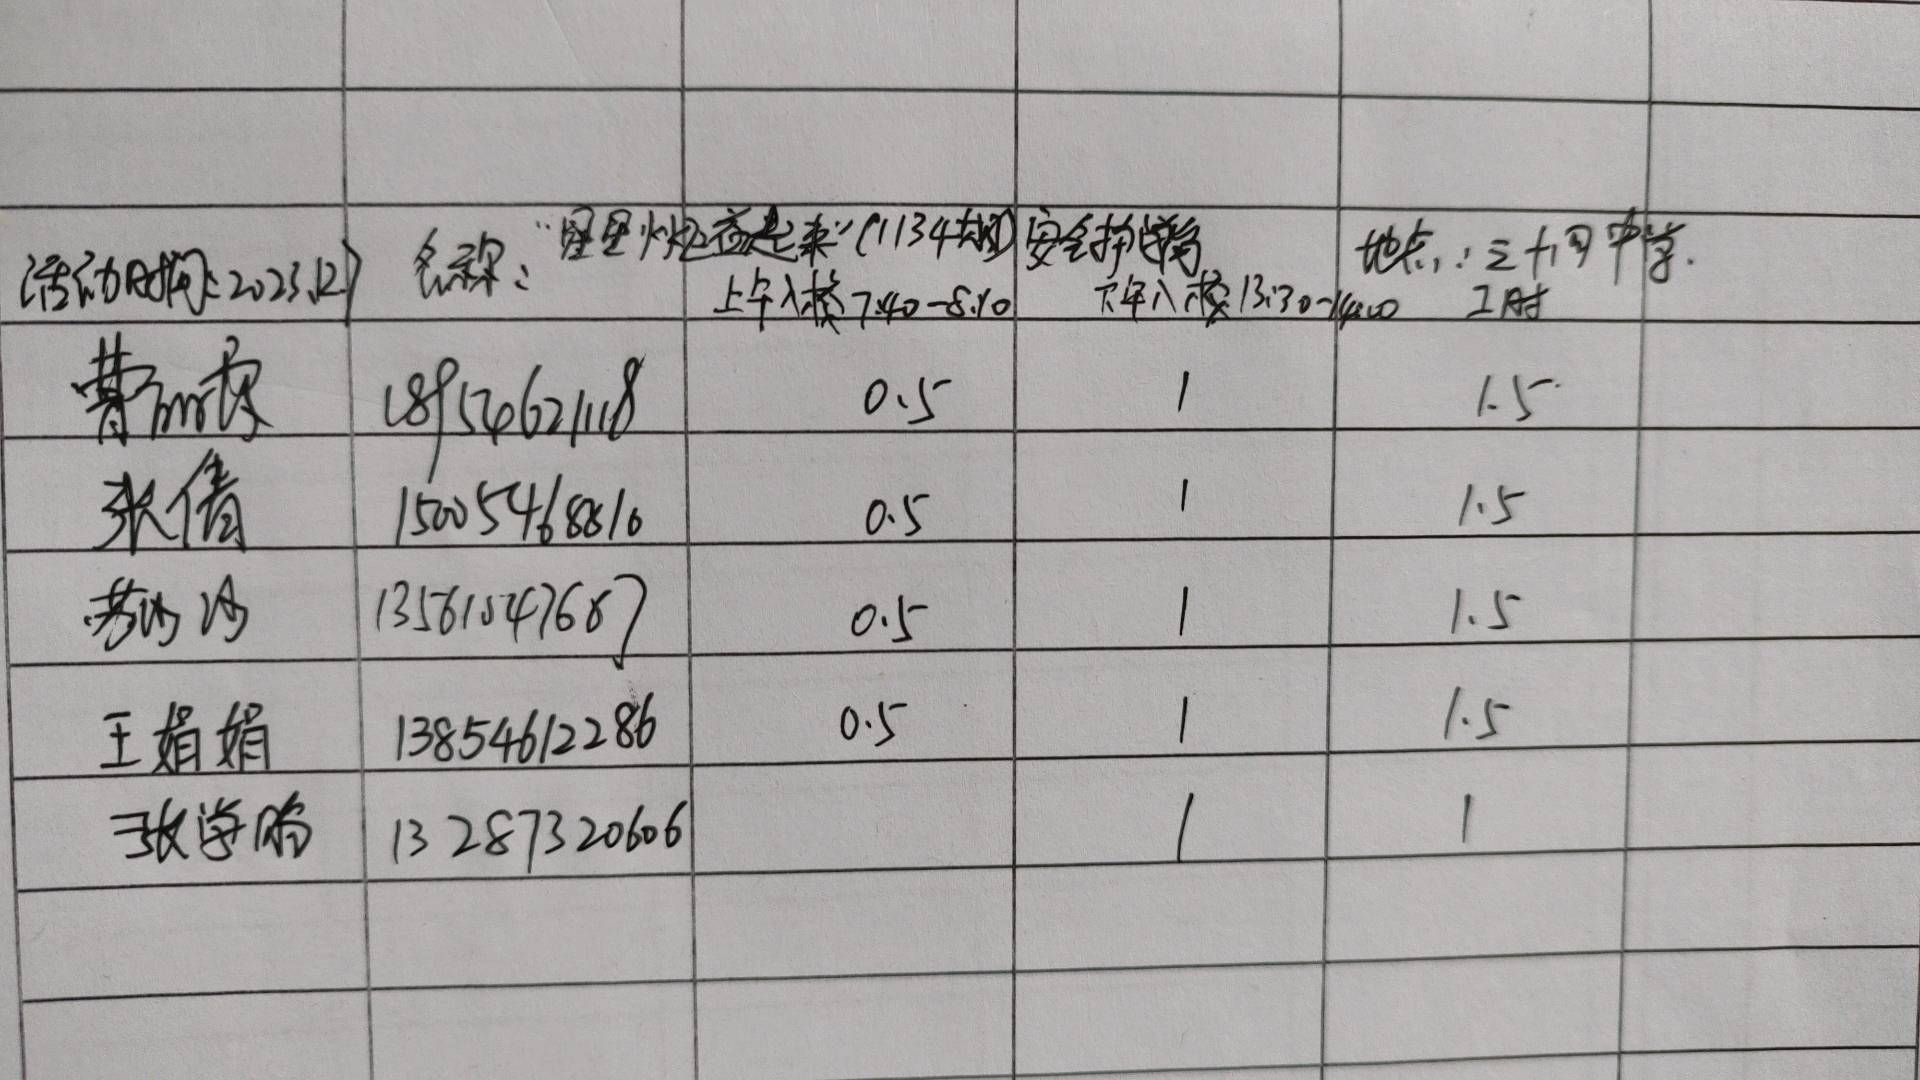 活动时间:2023.12.1 名称:"星星火炬益起来"(1134期)安全护学岗 地点:三十四中学.
上午入校7:40-8:10 下午入校13:30-14:00 工时
18954621118 0.5 1 1.5
张倩 15005468810 0.5 1 1.5
苏沙沙 13561047687 0.5 1 1.5
王娟娟 13854612286 0.5 1 1.5
张学鹏 13287320606 1 1